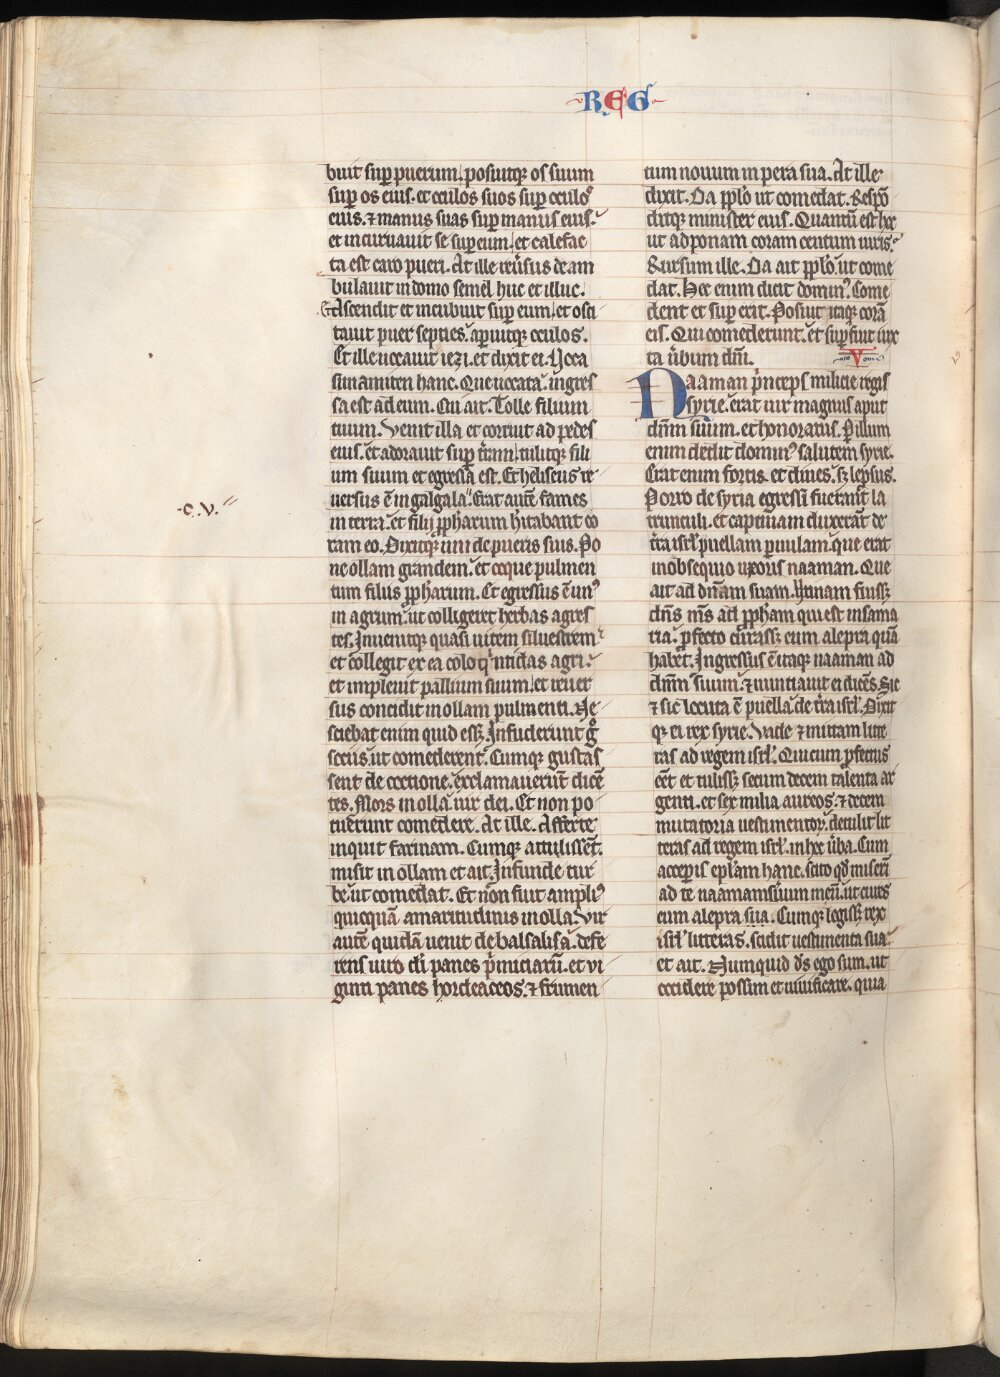 REG
buit sup puerum. posuitq; os suum
sup os eius. et oculos suos sup oculos
eius. ⁊ manus suas sup manus eius.
et incuruauit se sup eum. et calefac
ta est caro pueri. At ille reuersus deam
bulauit in domo semel huc et illuc.
Et Ascendit et incubuit sup eum. et osci
tauit puer septies. aperuitq; oculos.
Et ille uocauit iezi. et dixit ei. Uoca
sunamiten hanc. Que uocata. ingres
sa est ad eum. Qui ait. Tolle filium
tuum. Venit illa et corruit ad pedes
eius. et adorauit sup t̄ram. tulitq; fili
um suum et egressa est. Et heliseus re
uersus ē in galgala. Erat autē fames
in terra. et filij ꝓphetarum h̄itabant co
ram eo. Dixitq; uni de pueris suis. Po
ne ollam grandem. et coque pulmen
tum filiis ꝓpharum. Et egressus ē un⁹
in agrum. ut colligeret herbas agres
tes. Inuenitq; quasi uitem siluestrem
et collegit ex ea coloquintidas agri.
et impleuit pallium suum. et reuer
sus concidit in ollam pulmenti. Ne
sciebat enim quid ess;. Infuderunt g̊
sociis ut comederent. Cumq; gustas
sent de coctione. exclamauerūt dicē
tes. Mors in olla. uir dei. Et non po
tuerunt comedere. At ille. Afferte
inquit farinam. Cumq; attulissēt.
misit in ollam et ait. Infunde tur
be. ut comedat. Et non fuit ampli⁹
quicquā amaritudinis in olla. Vir
autē quidā uenit de balsalisa. defe
rens uiro d̄i panes p̄miciarū. et vi
ginti panes hordeaceos. ⁊ frumen
·c.v.
tum nouum in pera sua. At ille
dixit. Da ꝓplo ut comedat. Respō
ditq; minister eius. Quantū est hoc
ut adponam coram centum uiris.
Rursum ille. Da ait ꝓplo. ut come
dat. Hec enim dicit domin⁹. Come
dent et sup erit. Posuit itaq; corā
eis. Qui comederunt. et supfuit iux
ta ūbum dn̄i.
V
Naaman p̄nceps milicie regis
syrie. erat uir magnus aput
dn̄m suum. et honoratus. P illum
enim dedit domin⁹ salutem syrie.
Erat enim fortis et diues. s; lepsus.
Porro de syria egressi fuerant la
trunculi. et captiuam duxerāt de
t̄ra isrl̄ puellam ꝑuulam. que erat
in obsequio uxoris naaman. Que
ait ad dn̄am suam. Utinam fuiss;
dn̄s m̄s ad ꝓpham qui est in sama
ria. ꝓfecto curass; eum a lepra quā
habet. Ingressus ē itaq; naaman ad
dn̄m suum. ⁊ nuntiauit ei dicēs. Sic
⁊ sic locuta ē puella de t̄ra isrl̄. Dixit
q; ei rex syrie. Vade ⁊ mittam litte
ras ad regem isrl̄. Qui cum ꝓfectus
eēt et tuliss; secum decem talenta ar
genti. et sex milia aureos. ⁊ decem
mutatoria uestimentoꝝ. detulit lit
teras ad regem isrl̄. in hec ūba. Cum
acceperis epl̄am hanc. scito qd̄ miserī
ad te naaman suum meū. ut cures
eum a lepra sua. Cumq; legiss; rex
isrl̄ litteras. scidit uestimenta sua.
et ait. Numquid d̄s ego sum. ut
occidere possim et uiuificare. quia